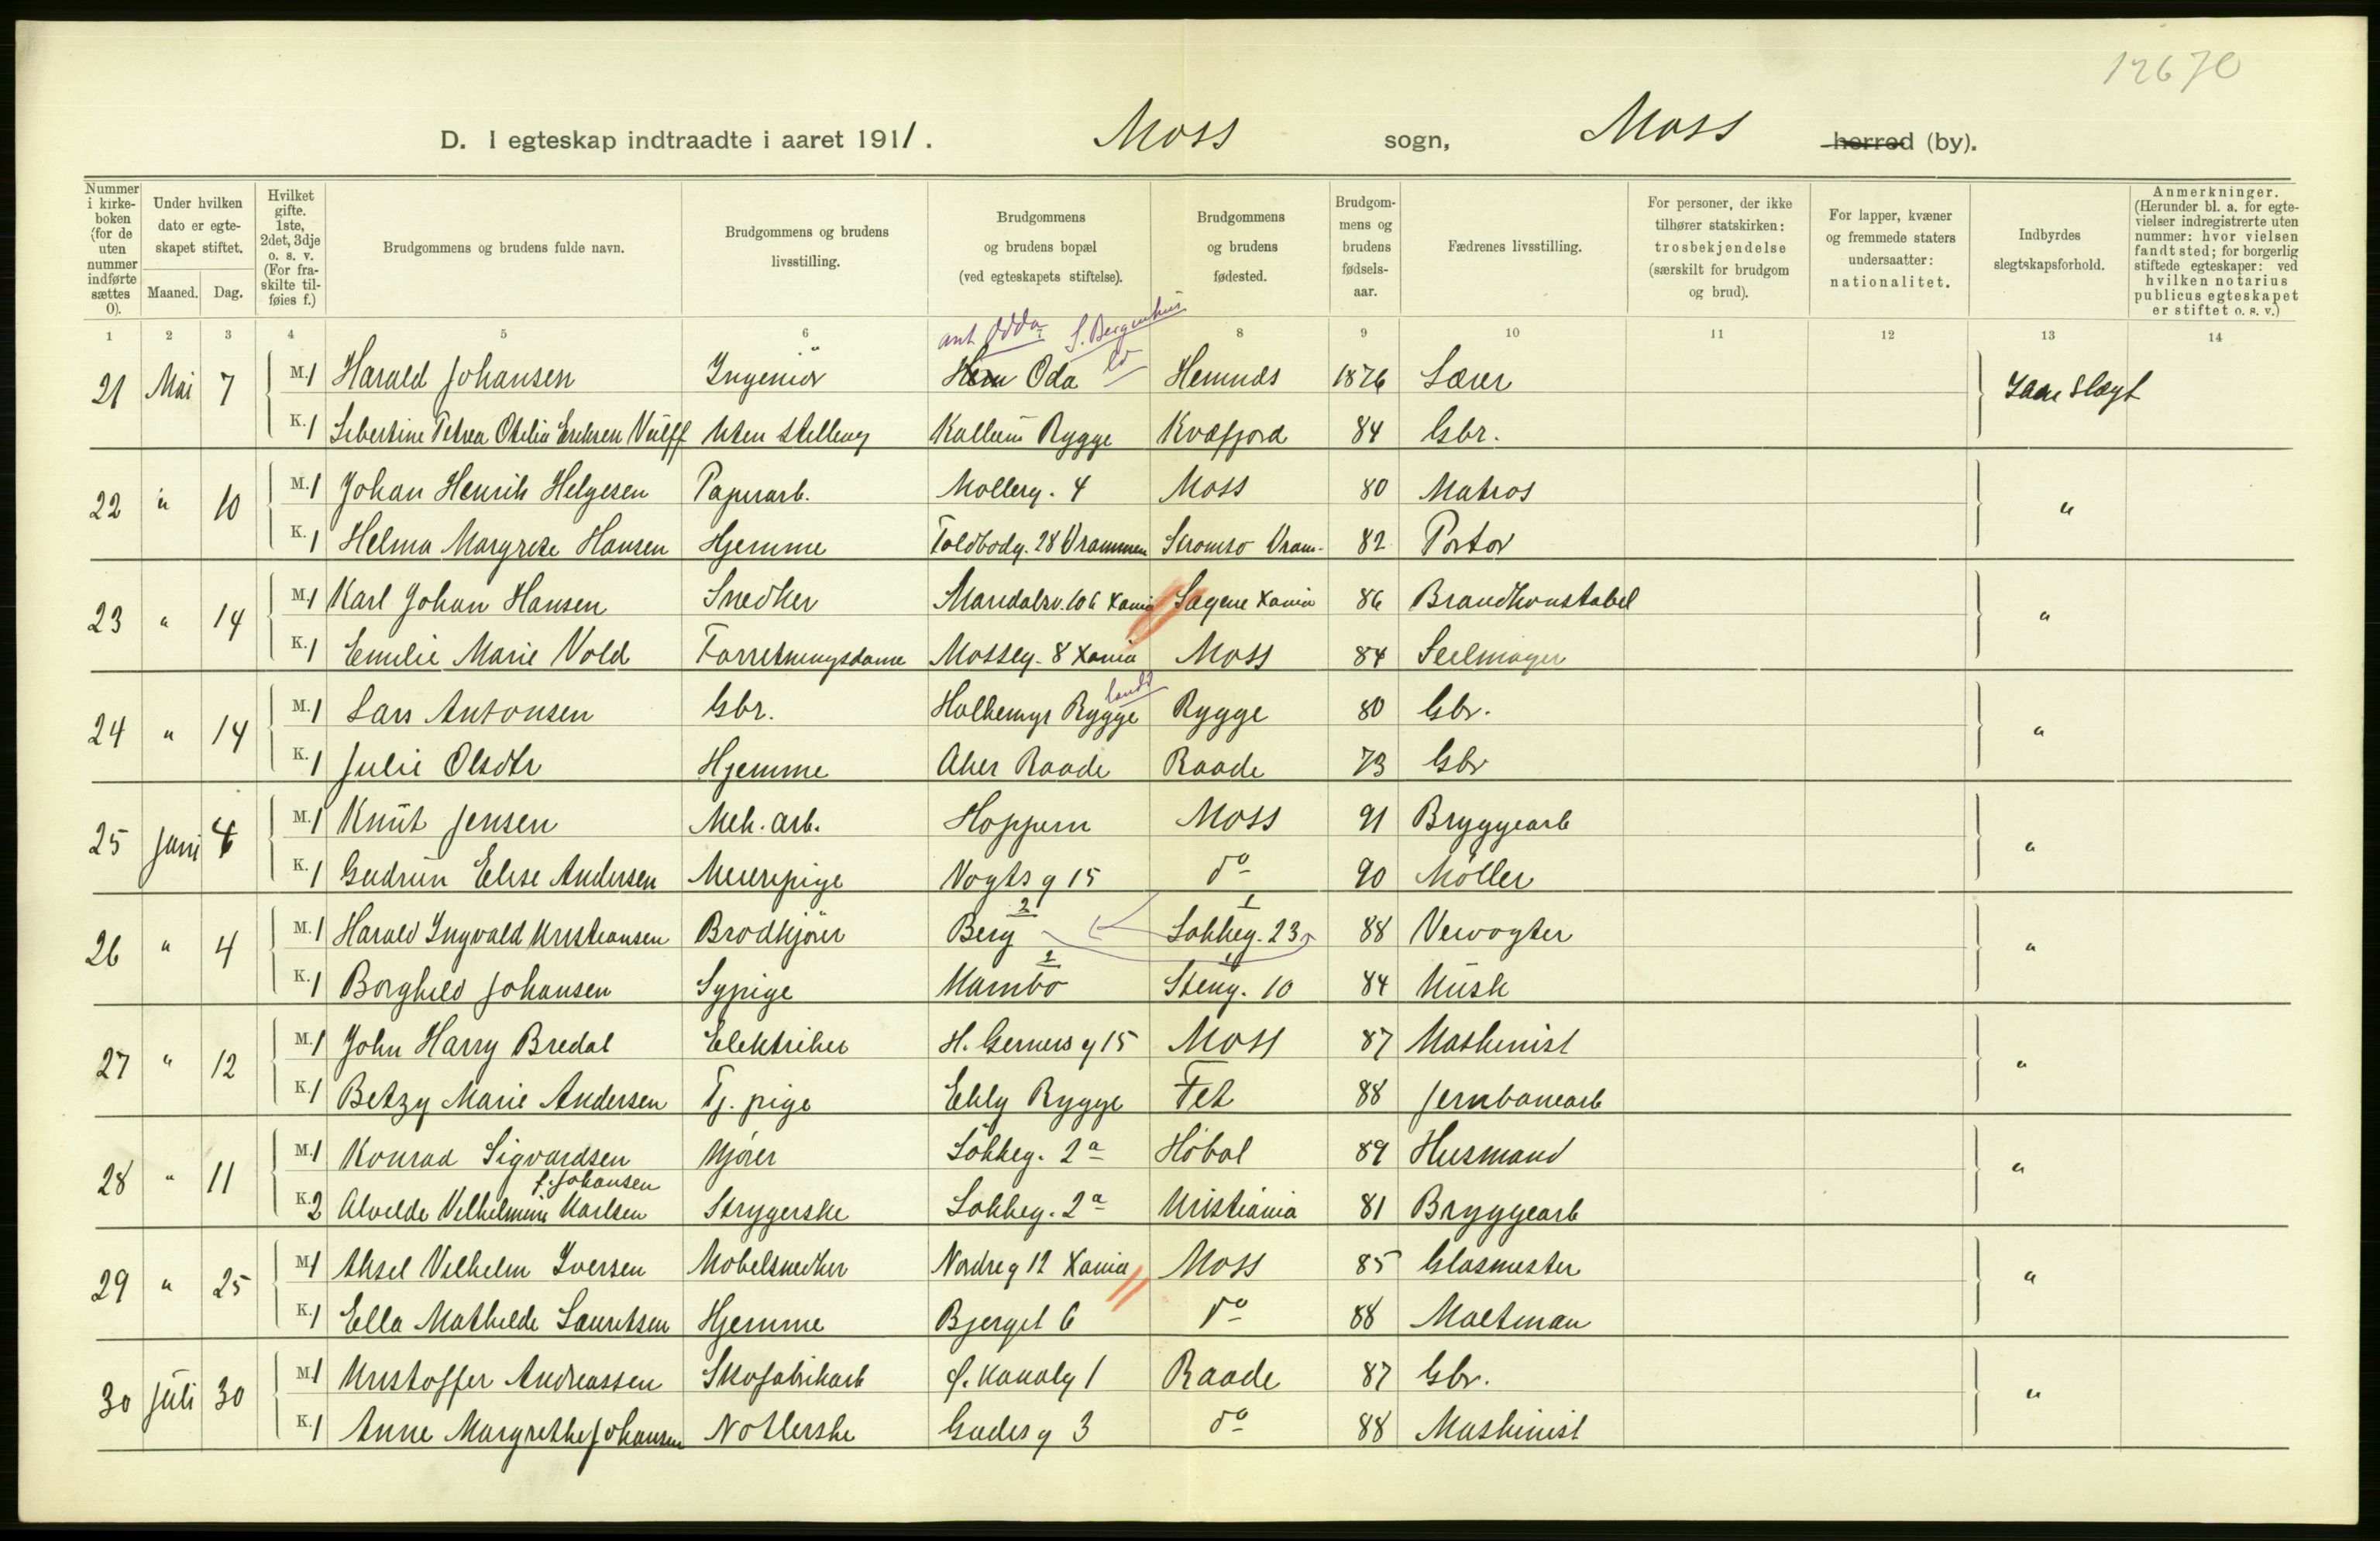 12670
D. I egteskap indtraadte i aaret 1911. Moss sogn, Moss herred (by).
Nummer i kirkeboken (for de uten nummer indførte sættes 0).
Under hvilken dato er egteskapet stiftet.
Maaned. Dag.
Hvilket gifte. 1ste, 2det, 3dje o. s. v. (For fraskilte tilføies f.)
Brudgommens og brudens fulde navn.
Brudgommens og brudens livsstilling.
Brudgommens og brudens bopæl (ved egteskapets stiftelse).
Brudgommens og brudens fødested.
Brudgommens og brudens fødselsaar.
Fædrenes livsstilling.
For personer, der ikke tilhører statskirken: trosbekjendelse (særskilt for brudgom og brud).
For lapper, kvæner og fremmede staters undersaatter: nationalitet.
Indbyrdes slegtskapsforhold.
Anmerkninger. (Herunder bl. a. for egtevielser indregistrerte uten nummer: hvor vielsen fandt sted; for borgerlig stiftede egteskaper: ved hvilken notarius publicus egteskapet er stiftet o. s. v.)
1 2 3 4 5 6 8 9 10 11 12 13 14
ant Odda S. Bergenhus
21 Mai 7 M. 1 Harald Johansen Ingeniör Oda Hemnes 1876 Lærer
K. 1 Libertine Petrea Otilia Eriksen Wulff Uten Stilling Kallum Rygge Kvæfjord 84 Gbr.
22 " 10 M. 1 Johan Henrik Helgesen Papirarb. Mollerg. 4 Moss 80 Matros "
K. 1 Helma Margrete Hansen Hjemme Toldbodg. 28 Drammen Stromso Dram. 82 Portør
23 " 14 M. 1 Karl Johan Hansen Snedker Maridalsv. 106 Xania Sagene Xania 86 Brandkonstabel "
K. 1 Emilie Marie Vold Forretningsdame Mosseg. 8 Xania Moss 84 Seilmager
24 " 14 M. 1 Lars Antonsen Gbr. Holkemyr Rygge Rygge 80 Gbr. "
K. 1 Julie Olsdtr Hjemme Aker Raade Raade 73 Gbr
25 Juni 4 M. 1 Knut Jensen Mek. arb. Hoppern Moss 91 Bryggearb "
K. 1 Gudrun Elise Andersen Meieripige Vogts g 15 do 90 Møller
2 1
26 " 4 M. 1 Harald Ingvald Kristiansen Brodkjører Berg Lokkeg. 23 88 Veivogter "
K. 1 Borghild Johansen Sypige Kambo Steng. 10 84 Kusk
27 " 12 M. 1 John Harry Bredal Elektriker H. Gerners g 15 Moss 87 Maskinist "
K. 1 Betzy Marie Andersen Tj. pige Ekly Rygge Fet 88 Jernbanearb
28 " 11 M. 1 Konrad Sigvardsen Kjører Løkkeg. 2a Høbøl 89 Husmand "
f. Johansen
K. 2 Alvilde Vilhelmine Karlsen Strygerske Lokkeg. 2a Kristiania 81 Bryggearb
29 " 25 M. 1 Aksel Vilhelm Iversen Møbelsnedker Nordre g 12 Xania Moss 85 Glasmester "
K. 1 Ella Mathilde Lauritsen Hjemme Bjerget 6 do 88 Maltman
30 Juli 30 M. 1 Kristoffer Andreassen Skofabrikarb Ø. Kanalg 1 Raade 87 Gbr. "
K. 1 Anne Margrethe Johansen Notlerske Gudes g 3 do 88 Maskinist